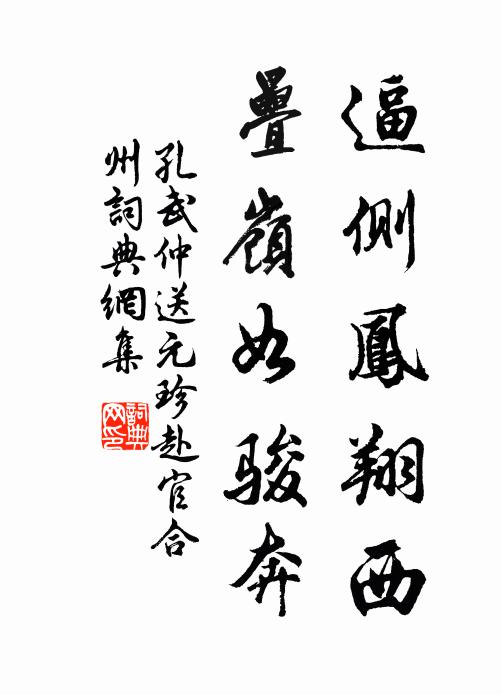 逼側鳳翔西
疊嶺如駿奔
孔武仲送元珍赴官合
州詞典網集
詞典网印